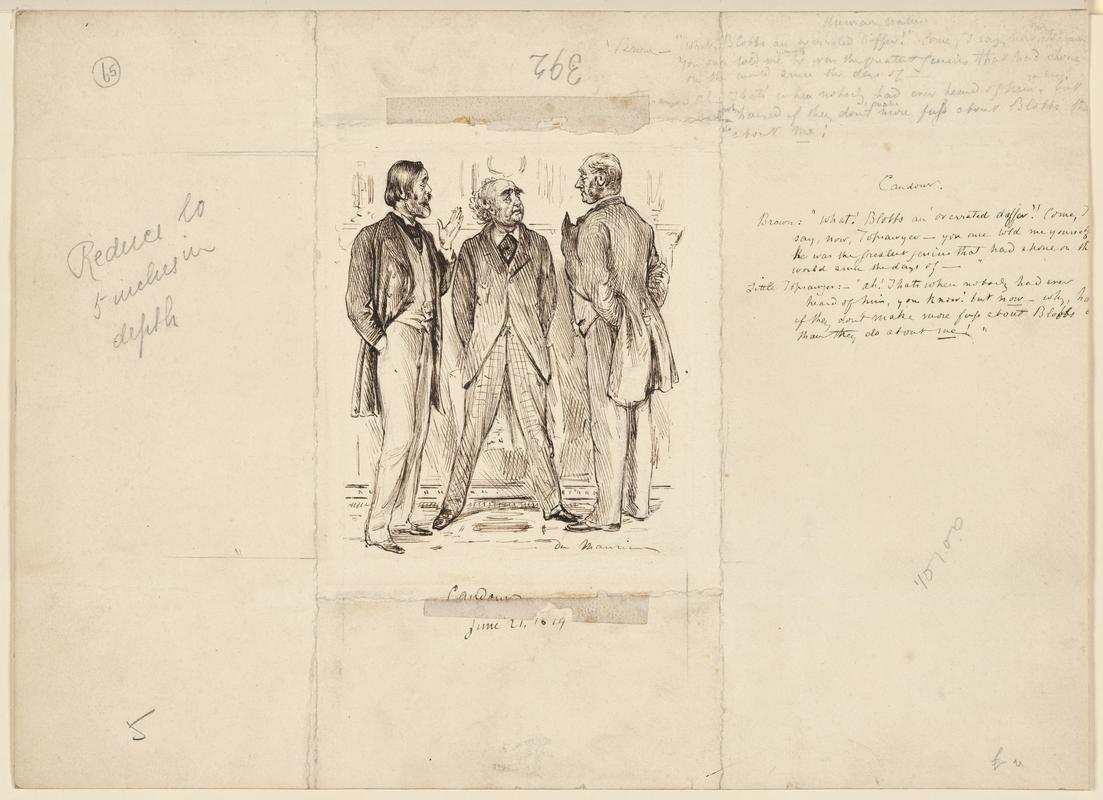 59
392
Human nature.
Brown — "What, Blobbs an overrated Duffer!" Come, I say, now,
You once told me he was the greatest genius that had shone
on the world since the days of —
That's when nobody had ever heard of him, you know! but
if they don't make more fuss about Blobbs
about me!
Candour.
Brown: "What! Blobbs an overrated duffer?! Come, I
say, now, Topsawyer — you once told me yourself
he was the greatest genius that had shone on th
world since the days of — "
Little Topsawyer: — "Ah! That's when nobody had ever
heard of him, you know! but now — why, ha
if they don't make more fuss about Blobbs
than they do about me! "
Reduce to
5 inches in
depth
du Maurier
Candour
June 21. 1879
5